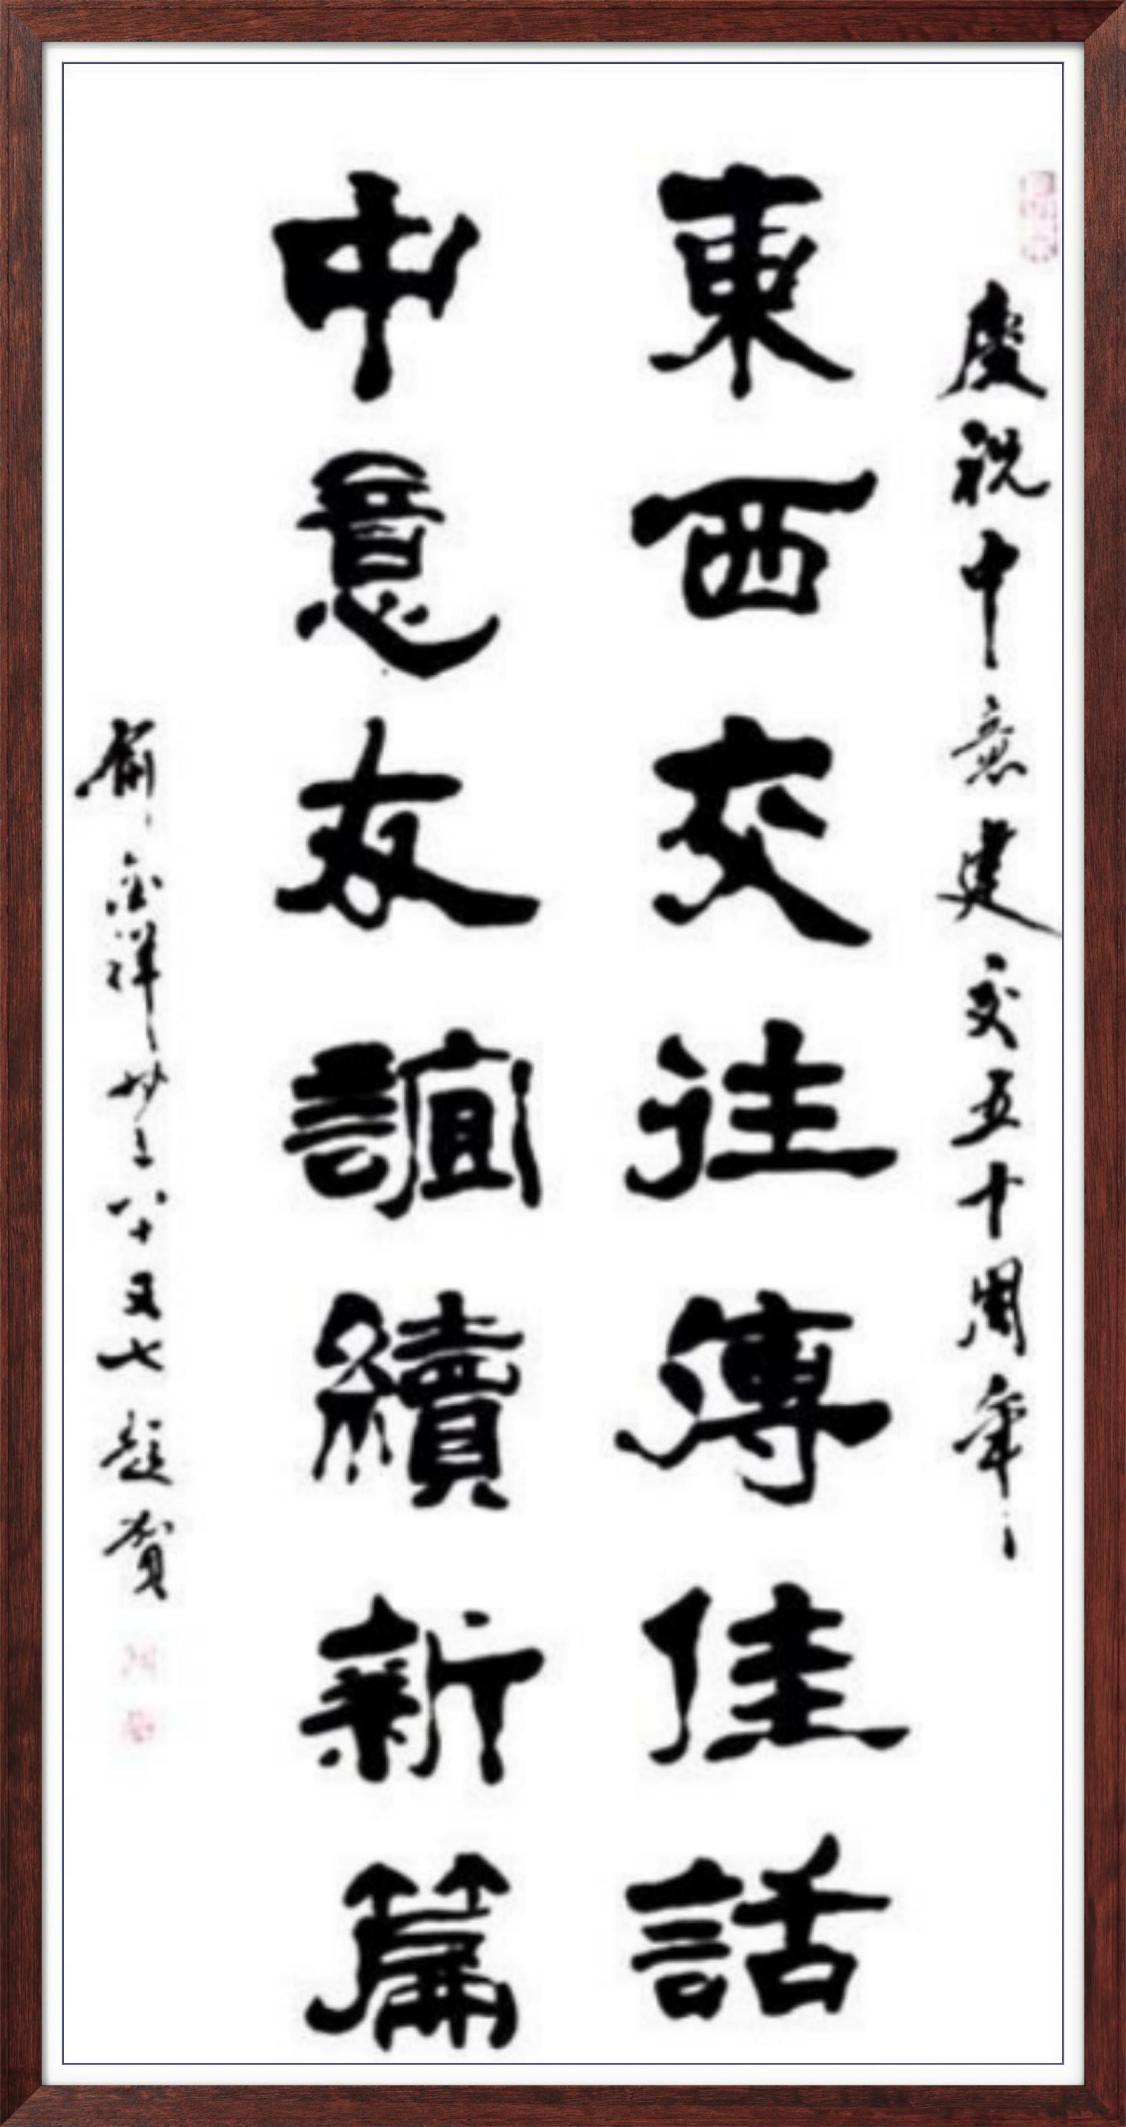 慶祝中意建交五十周年
東西交往傳佳話
中意友誼續新篇
祥 八十又七題賀